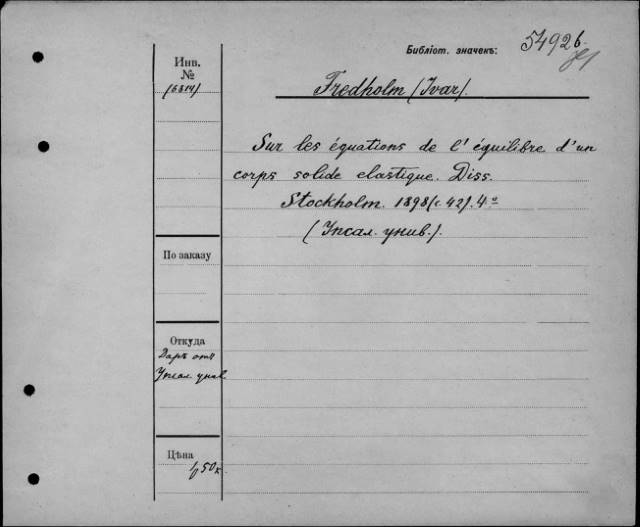 Библіот. значекъ: 5492б
Инв.
№
(6314)
Fredholm (Ivar).
Sur les équations de l'équilibre d'un
corps solide elastique. Diss.
Stockholm. 1898 (с. 42). 4º
(Упсал. унив.).
По заказу
Откуда
Даръ отъ
Упсал. унив.
Цѣна
1р 50к